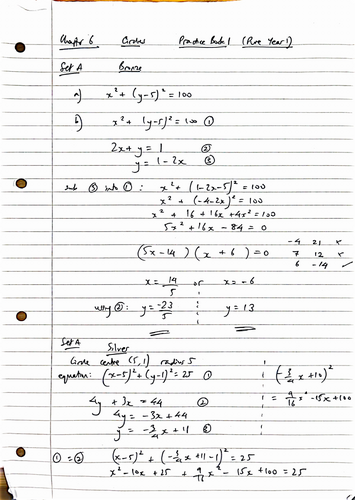 Chapter 6 Circles Practice Book 1 (Pure Year 1)
Set A Bronze
a) x² + (y-5)² = 100
b) x² + (y-5)² = 100 ①
2x + y = 1 ②
y = 1-2x ③
sub ③ into ①: x² + (1-2x-5)² = 100
x² + (-4-2x)² = 100
x² + 16 + 16x + 4x² = 100
5x² + 16x - 84 = 0
(5x-14)(x+6) = 0
-4 21 x
7 12 x
6 -14 ✓
x = 14/5 or x = -6
using ②: y = -23/5 y = 13
Set A Silver
Circle centre (5,1) radius 5
equation: (x-5)² + (y-1)² = 25 ①
4y + 3x = 44 ②
4y = -3x + 44
y = -3/4 x + 11 ③
(-3/4 x + 10)²
= 9/16 x² - 15x + 100
① = ② (x-5)² + (-3/4 x + 11 - 1)² = 25
x² - 10x + 25 + 9/16 x² - 15x + 100 = 25